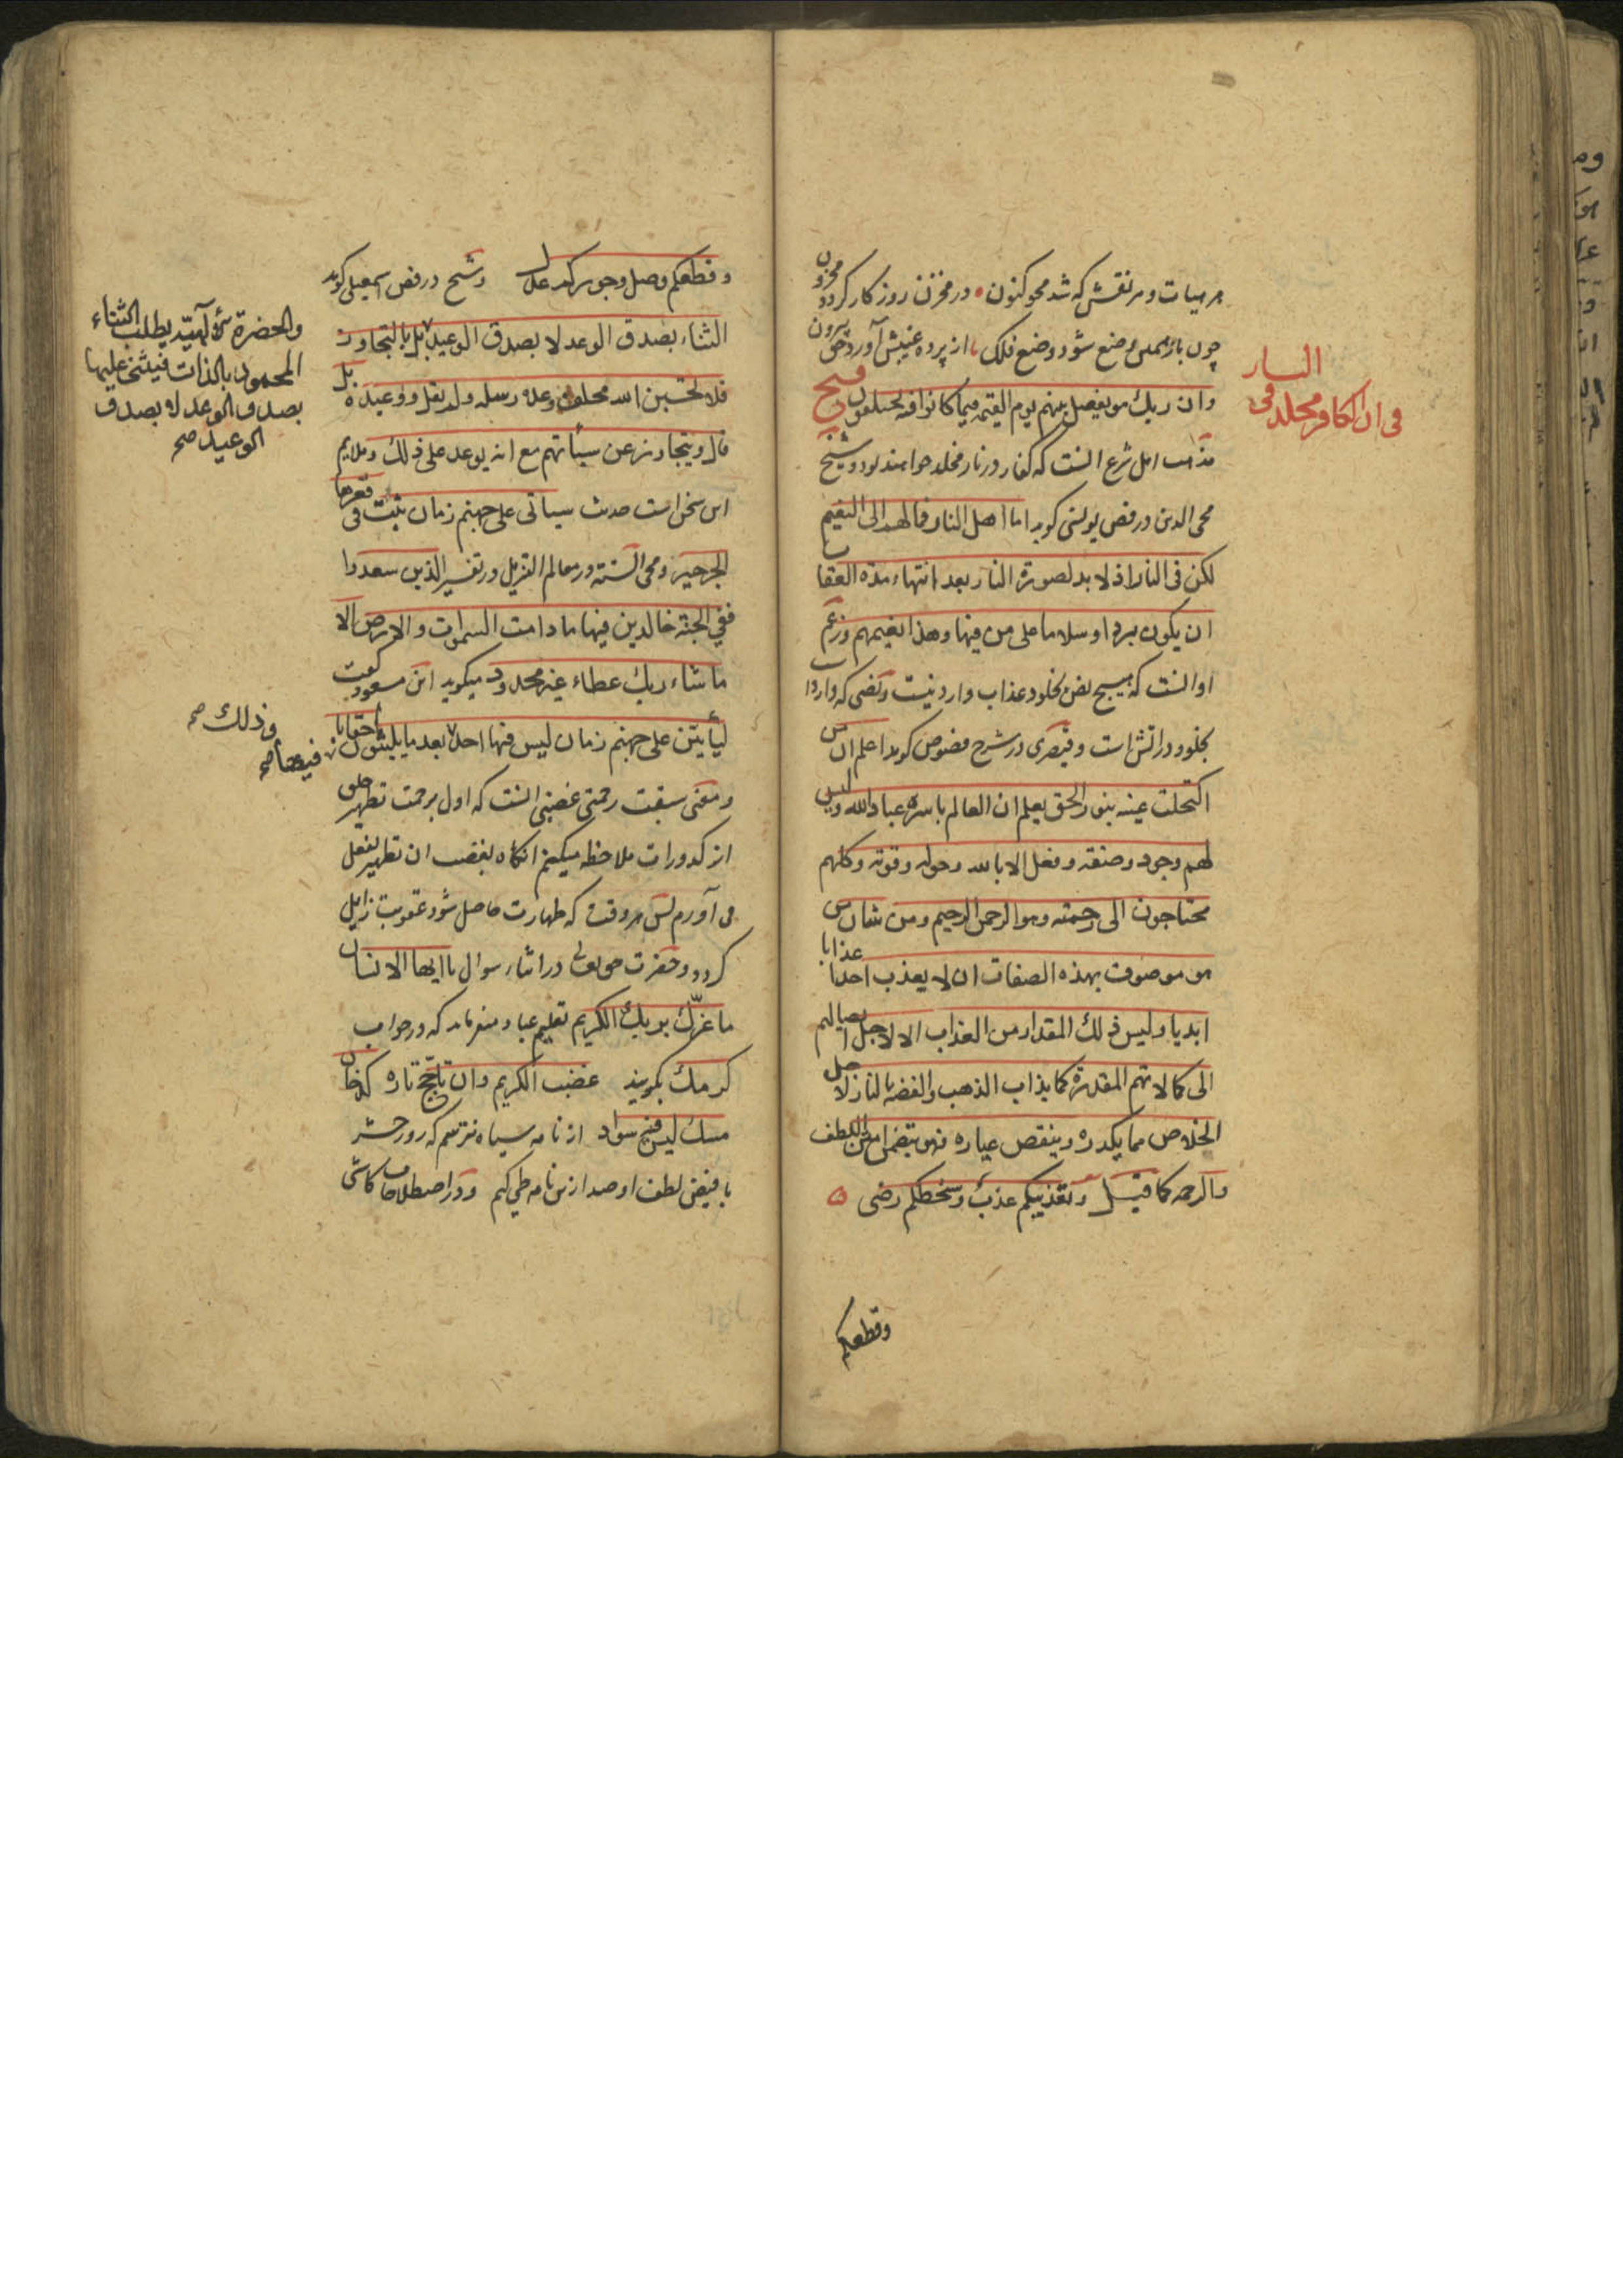 هر هیات و هر نقش که شد محو کنون در مخزن روزکار کردد مخزون
چون باز همین وضع شود وضع فلک از پرده غیبش آورد حق بیرون
وان ربك هو یفصل بینهم یوم القیمه فیما کانوا فیه یختلفون فتح
فی ان الکافر مخلد فی النار
مذهب اهل شرع آنست که کفار در نار مخلد خواهند بود و شیخ
محی الدین در فص یونسی کوید اما اهل النار فمآلهم الی النعیم
لکن فی النار اذ لا بد لصورة النار بعد انتهاء مدة العقاب
ان یکون بردا وسلاما علی من فیها وهذا نعیمهم وزعم
او آنست که هیچ نص بخلود عذاب وارد نیست ونصی که وارد است
بخلود در آتش است و قیصری در شرح فصوص کوید اعلم ان من
اکتحلت عینه بنور الحق یعلم ان العالم باسره عباد الله ولیس
لهم وجود وصفة وفعل الا بالله وحوله وقوته وکلهم
محتاجون الی رحمته وهو الرحمن الرحیم ومن شان من
هو موصوف بهذه الصفات ان لا یعذب احدا عذابا
ابدیا ولیس ذلك المقدار من العذاب الا لاجل ایصالهم
الی کمالاتهم المقدرة کما یذاب الذهب والفضة بالنار لاجل
الخلاص مما یکدره وینقص عیاره فهو یتضمن لعین اللطف
والرحمه کما قیل وتعذیبکم عذب وسخطکم رضی
وقطعکم
وقطعکم وصل وجورکم عدل وشیخ در فص اسمعیلی کوید
الثناء بصدق الوعد لا بصدق الوعید بل بالتجاوز
والحضرة الآلهیة یطلب الثناء
المحمود بالذات فیثنی علیها
بصدق الوعد لا بصدق
الوعید صح
فلا تحسبن الله مخلف وعده رسله ولم یقل ووعیده بل
قال ویتجاوز عن سیآتهم مع انه یوعد علی ذلك وملایم
این سخن است حدیث سیاتی علی جهنم زمان ینبت فی قعرها
الجرجیر ومحی السنة در معالم التنزیل در تفسیر الذین سعدوا
ففی الجنة خالدین فیها ما دامت السموات والارض الا
ما شاء ربك عطاء غیر مجذوذ میکوید ابن مسعود کفت
لیأتین علی جهنم زمان لیس فیها احد بعد ما یلبثون فیها احقابا
وذلك صح
ومعنی سبقت رحمتی غضبی آنست که اول برحمت تطهیر خلق
از کدورات ملاحظه میکنم آنکاه بغضب آن تطهیر بفعل
می آورم پس هر وقت که طهارت حاصل شود عقوبت زایل
کردد و حضرت حق تعالی در اثناء سوال یا ایها الانسان
ما غرّك بربك الکریم تعلیم عباد میفرماید که در جواب
کرمك بکویند غضب الکریم وان تأجج ناره کدخان
مسك لیس فیه سواد از نامه سیاه نترسم که روز حشر
با فیض لطف او صد ازین نامه طی کنم ودر اصطلاحات کاشی